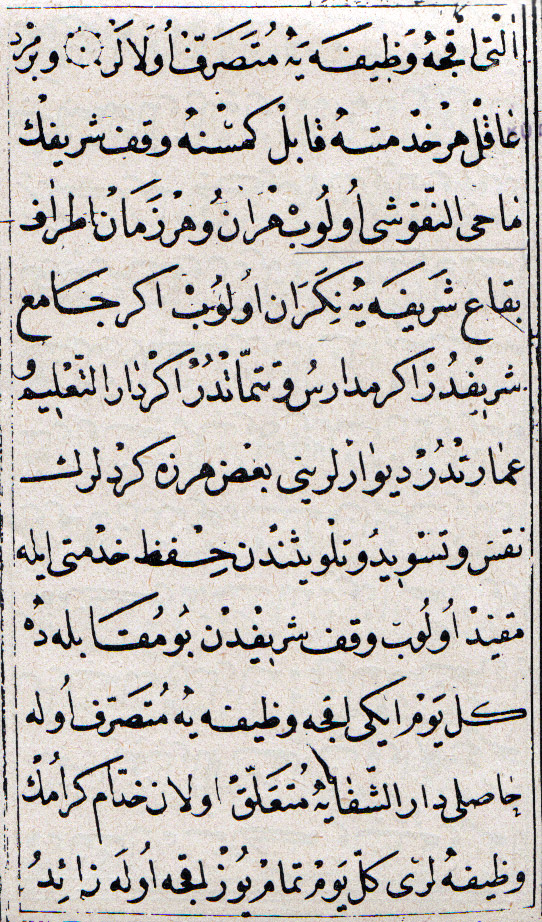 التی اقچه وظیفه یه متصرف اولالر و بر مرد
عاقل هر خدمته قابل کمسنه وقف شریفك
ماحی النقوشی اولوب هر آن و هر زمان اطراف
بقاع شریفه یه نکران اولوب اکر جامع
شریفدر اکر مدارس و تتماتدر اکر دار التعلیم و
عمارتدر دیوارلرینی بعض هرزه کردلرك
نقس و تسوید و تلویثندن حفظ خدمتی ایله
مقید اولوب وقف شریفدن بو مقابله ده
کل یوم ایکی اقچه وظیفه یه متصرف اوله
حاصلی دار الشفایه متعلق اولان خدام کرامك
وظیفه لری کل یوم تمام یوز اقچه اوله زائد